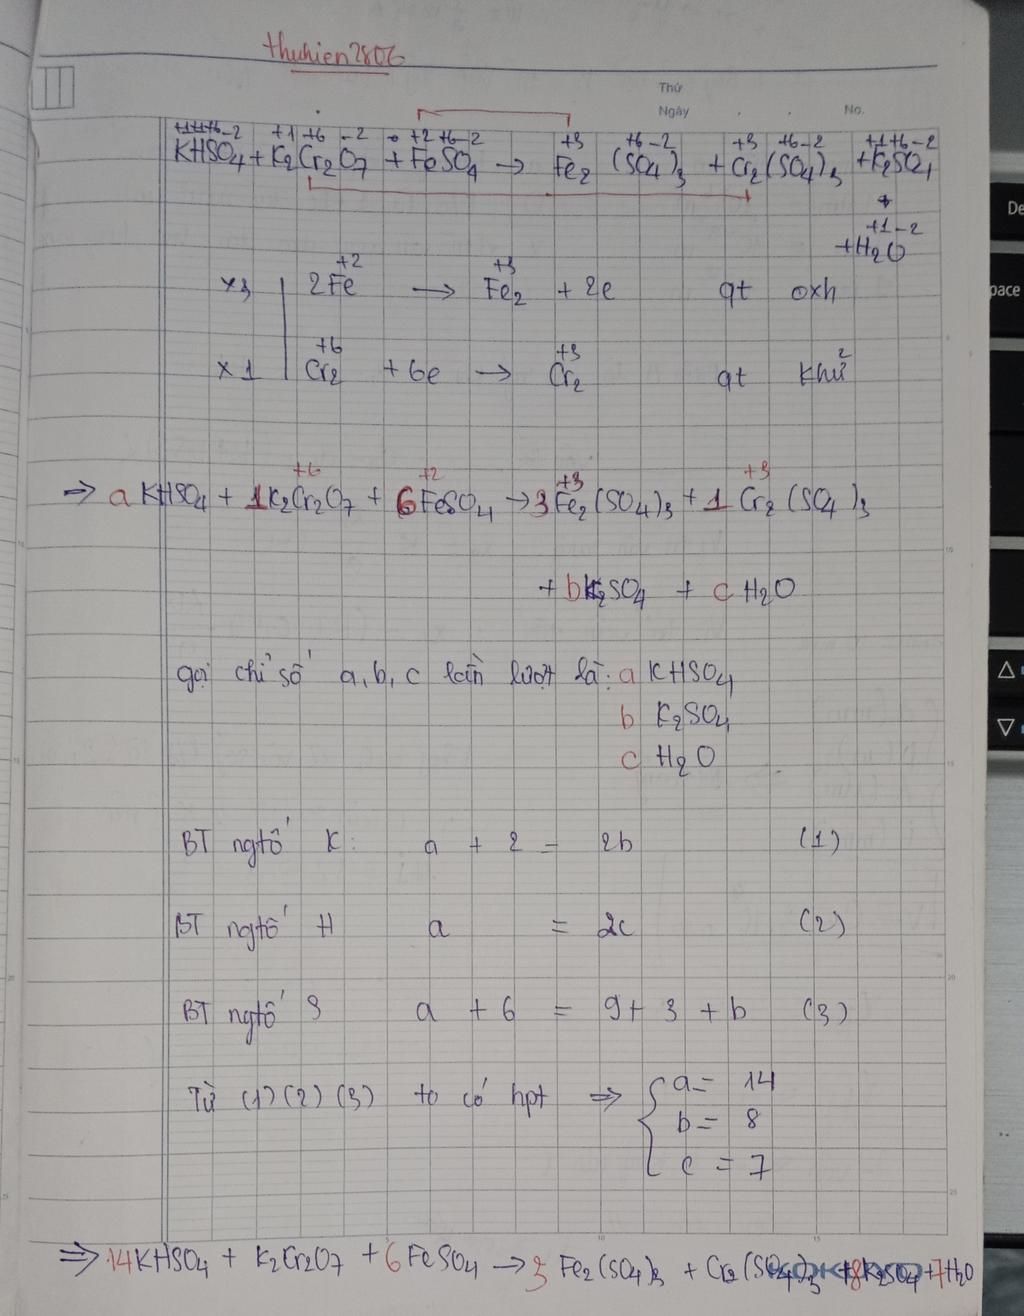 thuhien2806
Thứ
Ngày No.
+1+1+6-2 +1 +6 -2 +2 +6 -2 +3 +6 -2 +3 +6 -2 +1+6-2
KHSO4 + K2Cr2O7 + FeSO4 → Fe2 (SO4)3 + Cr2(SO4)3 + K2SO4
+1 -2
+H2O
+2 +3
x3 2Fe → Fe2 + 2e qt oxh
+6 +3
x1 Cr2 + 6e → Cr2 qt khử
+6 +2 +3 +3
⇒ a KHSO4 + 1K2Cr2O7 + 6FeSO4 → 3Fe2(SO4)3 + 1 Cr2 (SO4)3
+ bK2SO4 + c H2O
gọi chỉ số a, b, c lần lượt là: a KHSO4
b K2SO4
c H2O
BT ngtố K: a + 2 = 2b (1)
BT ngtố H a = 2c (2)
BT ngtố S a + 6 = 9 + 3 + b (3)
Từ (1) (2) (3) ta có hpt ⇒ { a = 14
b = 8
c = 7
⇒ 14KHSO4 + K2Cr2O7 + 6FeSO4 → 3 Fe2(SO4)3 + Cr2(SO4)3 + 8K2SO4 + 7H2O